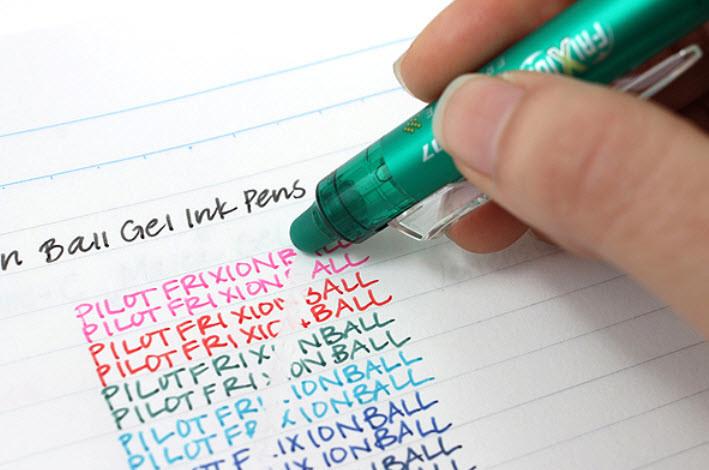 FRIXION
17
n Ball Gel Ink Pens
PILOT FRIXION B
PILOT FRIXION ALL
PILOT FRIXION BALL
PILOT FRIXIO BALL
PILOT FRIXI N BALL
PILOT FRI ON BALL
PILOT FRI IONBALL
PILOT FR XIONBALL
IXIONBALL
XIONBALL